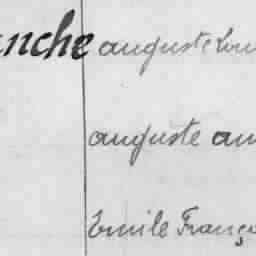 anche auguste Lou
auguste am
Emile Franço